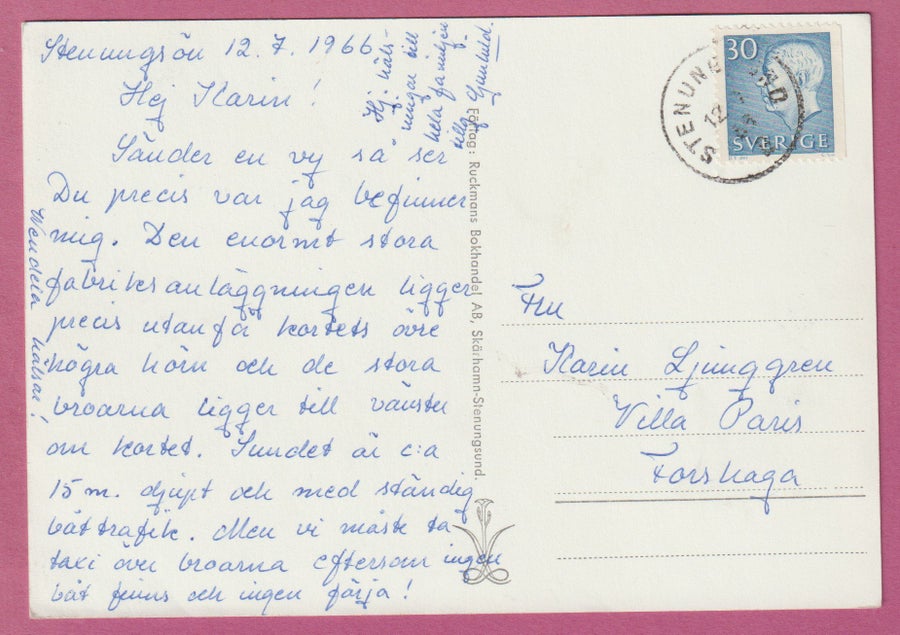 Stenungsön 12.7.1966.
Hej Karin!
Sänder en vy så ser
Du precis var jag befinner
mig. Den enormt stora
fabriksanläggningen ligger
precis utanför kortets övre
högra hörn och de stora
broarna ligger till vänster
om kortet. Sundet är c:a
15 m. djupt och med ständig
båttrafik. Men vi måste ta
taxi över broarna eftersom ingen
båt finns och ingen färja!
Wendela hälsar!
Hj. häls-
ningar till
hela familjen
Gunhild.
Förlag: Ruckmans Bokhandel AB, Skärhamn-Stenungsund.
30
SVERIGE
STENUNGSUND
12
Fru
Karin Ljunggren
Villa Paris
Forshaga